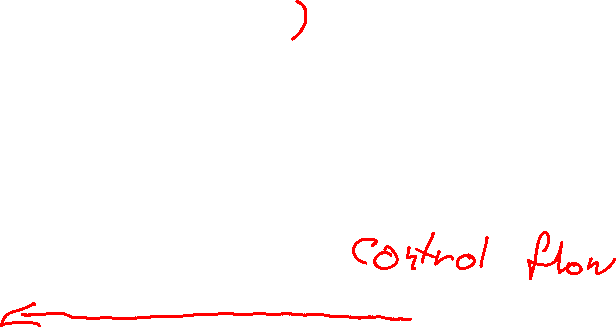 )
control flow